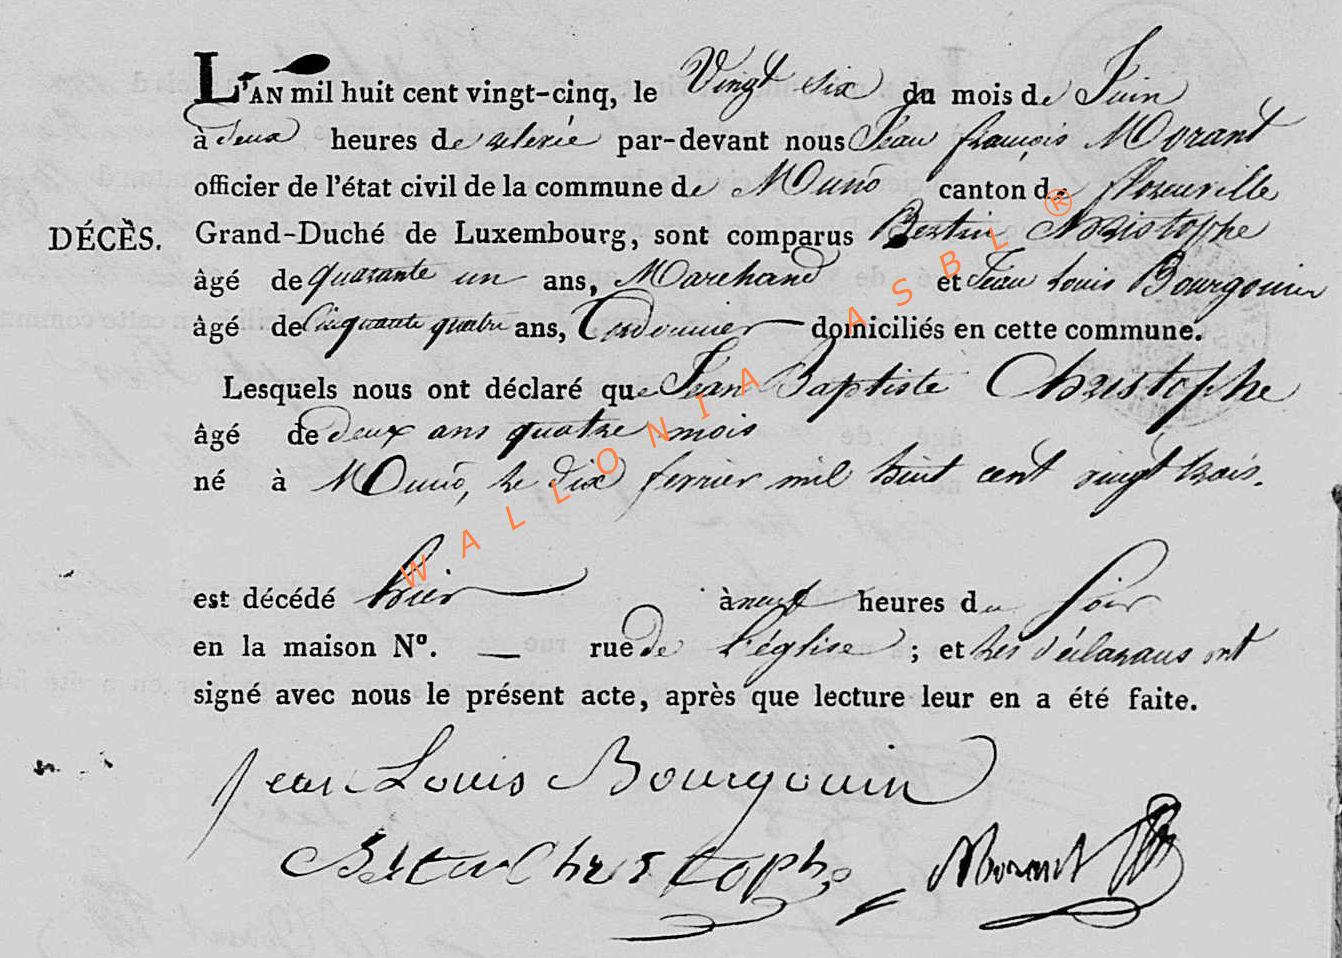 L'AN mil huit cent vingt-cinq, le Vingt six du mois de Juin
à deux heures de relevée par-devant nous Jean françois Morant
officier de l'état civil de la commune de Muno canton de florenville
DÉCÈS. Grand-Duché de Luxembourg, sont comparus Bertin Christophe
âgé de quarante un ans, Marchand et Jean Louis Bourgouin
âgé de Cinquante quatre ans, Cordonnier domiciliés en cette commune.
Lesquels nous ont déclaré que Jean Baptiste Christophe
âgé de deux ans quatre mois
né à Muno, le dix fevrier mil huit cent vingt trois.
est décédé hier à neuf heures du soir
en la maison N°. — rue de l'église ; et les déclarans ont
signé avec nous le présent acte, après que lecture leur en a été faite.
Jean Louis Bourgouin
Bertin Christophe Morant
WALLONIA ASBL ®